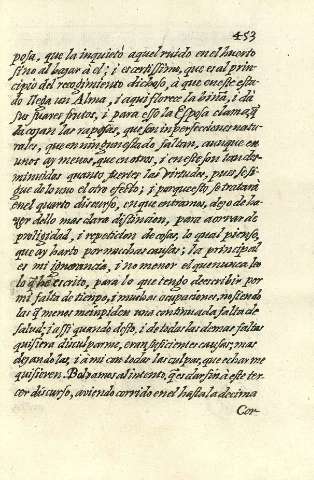 453
posa, que la inquietò aquel ruido en el huerto
sino al bajar à el; i es certissimo, que es al prin-
cipio del recogimiento dichoso, à que en este esta-
do llega un Alma, i aqui florece la biña, i dà
sus suaves frutos, i para esso la Esposa clama, q̃
la cojan las raposas, que son imperfecciones natu-
rales, que en ningun estado faltan, aunque en
unos ay menos, que en otros, i en este son tan dor-
minutas quanto fuertes las virtudes, pues se si-
gue de lo uno el otro efeto; i porque esto se tratarà
en el quarto discurso, en que entramos, dejo de ha-
zer dello mas clara distincion, para acorrar de
prolijidad, i repeticion de cosas, lo qual pienso,
que ay harto por muchas causas; la principal
es mi ignorancia, i no menor el que nunca leo
lo q̃ he escrito, para lo que tengo de escribir por
mi falta de tiempo, i muchas ocupaciones, no siendo
las q̃ menos me impiden una continuada falta de
salud; i assi quando desto, i de todas las demas faltas
quisiera disculparme, eran suficientes causas; mas
dejando las, i à mi con todas las culpas, que echarme
quisieren. Bolvamos al intento, q̃ es dar fin à este ter-
cer discurso, aviendo corrido en el hasta la decima
Cor-